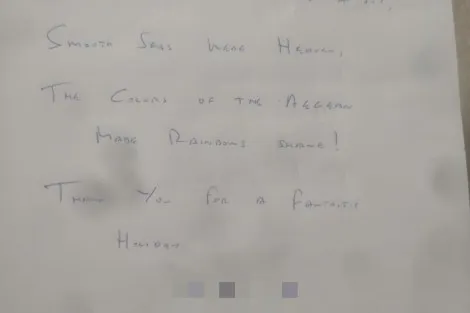 Smooth Seas Were Heaven,
The Colours of the Aegean
Made Rainbows
Thank You for a Fantastic
Holiday